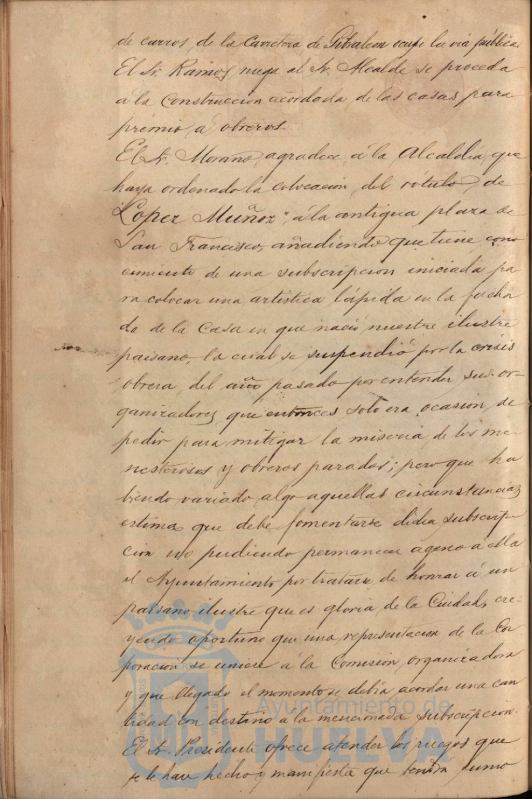 de carros, de la Carretera de Gibraleon ocupe la via pública
El Sr. Ramos, ruega al Sr. Alcalde se proceda
á la construccion acordada, de las casas para
premio, á obreros.
El Sr. Morano, agradece, á la Alcaldía, que
haya ordenado la colocación, del rótulo, de
"Lopez Muñoz", á la antigua plaza de
San Francisco, añadiendo que tiene cono-
cimiento de una subscripcion iniciada pa
ra colocar una artistica lápida en la facha
da de la Casa en que nació nuestro ilustre
paisano, la cual se suspendió por la crisis
obrera, del año pasado por entender sus or-
ganizadores que entonces solo era ocasion, de
pedir para mitigar la miseria de los me
nesterosos y obreros parados; pero que ha
biendo variado, algo aquellas circunstancias
estima que debe fomentarse dicha subscrip
cion no pudiendo permanecer ageno a ella
el Ayuntamiento, por tratarse de honrar á un
paisano ilustre que es gloria de la Ciudad, cre-
yendo oportuno que una representacion de la Cor
poracion se uniese á la Comision organizadora
y que llegado el momento se debia acordar una can
tidad con destino á la mencionada subscripcion.
El Sr. Presidente ofrece atender los ruegos que
se le han hecho y manifiesta que tendrá sumo
Ayuntamiento de
HUELVA